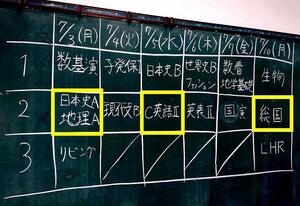 7/3(月) 7/4(火) 7/5(水) 7/6(木) 7/7(金) 7/10(月)
1 数基演 子発保 日本史B 世界史B ファッション 数看 地学基礎 生物
2 日本史A 地理A 現代文B C英語Ⅱ 英表Ⅱ 国演 総国
3 リビング LHR